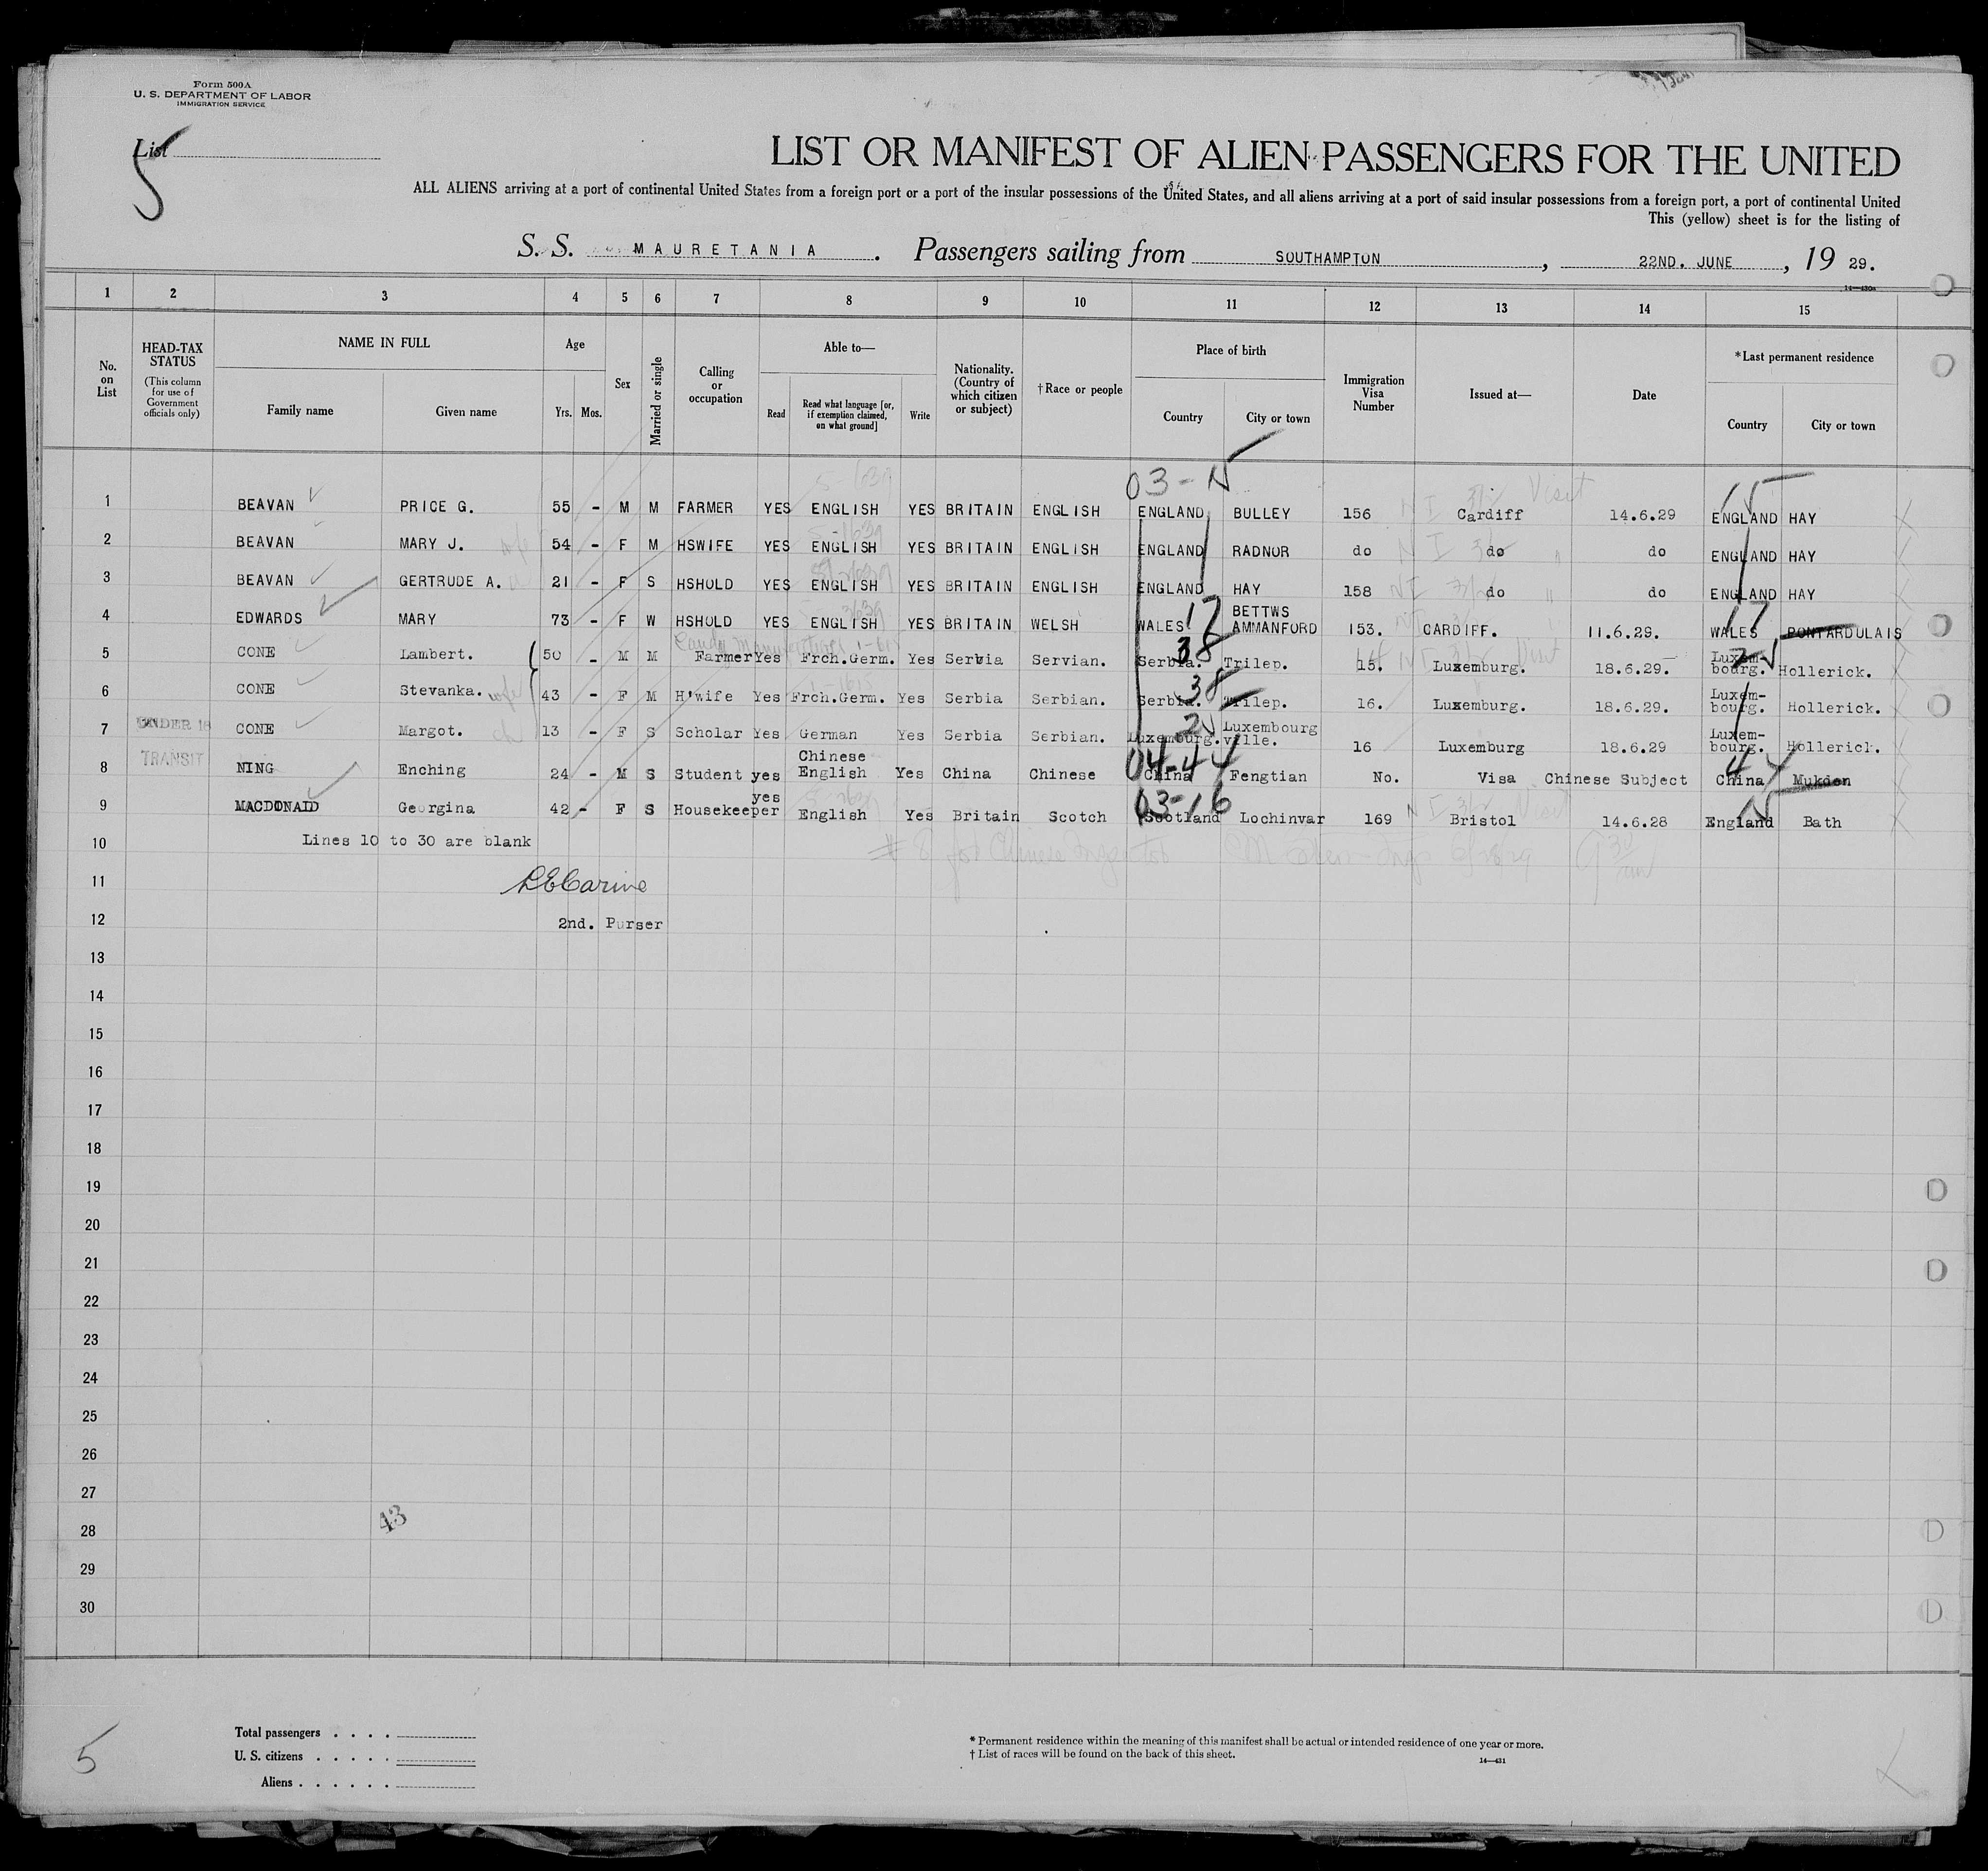 Form 500A
U. S. DEPARTMENT OF LABOR
IMMIGRATION SERVICE
List
5
LIST OR MANIFEST OF ALIEN PASSENGERS FOR THE UNITED
ALL ALIENS arriving at a port of continental United States from a foreign port or a port of the insular possessions of the United States, and all aliens arriving at a port of said insular possessions from a foreign port, a port of continental United
This (yellow) sheet is for the listing of
S. S. MAURETANIA. Passengers sailing from SOUTHAMPTON, 22ND. JUNE, 19 29.
14—430a
1 2 3 4 5 6 7 8 9 10 11 12 13 14 15
No. on List
HEAD-TAX STATUS
(This column for use of Government officials only)
NAME IN FULL
Family name Given name
Age
Yrs. Mos.
Sex
Married or single
Calling or occupation
Able to—
Read Read what language [or, if exemption claimed, on what ground] Write
Nationality. (Country of which citizen or subject)
†Race or people
Place of birth
Country City or town
Immigration Visa Number
Issued at—
Date
*Last permanent residence
Country City or town
03-15 Visit 15
1 BEAVAN PRICE G. 55 - M M FARMER YES ENGLISH YES BRITAIN ENGLISH ENGLAND BULLEY 156 Cardiff 14.6.29 ENGLAND HAY
2 BEAVAN MARY J. wife 54 - F M HSWIFE YES ENGLISH YES BRITAIN ENGLISH ENGLAND RADNOR do do do ENGLAND HAY
3 BEAVAN GERTRUDE A. 21 - F S HSHOLD YES ENGLISH YES BRITAIN ENGLISH ENGLAND HAY 158 do do ENGLAND HAY
4 EDWARDS MARY 73 - F W HSHOLD YES ENGLISH YES BRITAIN WELSH WALES 17 BETTWS AMMANFORD 153. CARDIFF. 11.6.29. WALES 17 PONTARDULAIS
Candy Manufacturer
5 CONE Lambert. 50 - M M Farmer Yes Frch.Germ. Yes Serbia Servian. Serbia. 38 Trilep. 15. Luxemburg. Visit 18.6.29. Luxem-bourg. Hollerick.
6 CONE Stevanka. wife 43 - F M H'wife Yes Frch.Germ. Yes Serbia Serbian. Serbia. 38 Trilep. 16. Luxemburg. 18.6.29. Luxem-bourg. Hollerick.
7 UNDER 16 CONE Margot. ch 13 - F S Scholar Yes German Yes Serbia Serbian. Luxemburg. Luxembourg ville. 16 Luxemburg 18.6.29 Luxem-bourg. Hollerick.
8 TRANSIT NING Enching 24 - M S Student yes Chinese English Yes China Chinese China 04-44 Fengtian No. Visa Chinese Subject China 44 Mukden
9 MACDONALD Georgina 42 - F S Housekeeper yes English Yes Britain Scotch Scotland 03-16 Lochinvar 169 Bristol Visit 14.6.28 England 15 Bath
10 Lines 10 to 30 are blank
# 8 for Chinese Inspector
11
12 2nd. Purser
13
14
15
16
17
18
19
20
21
22
23
24
25
26
27
28 43
29
30
5
Total passengers . . . .
U. S. citizens . . . . .
Aliens . . . . . .
* Permanent residence within the meaning of this manifest shall be actual or intended residence of one year or more.
† List of races will be found on the back of this sheet.
14—431